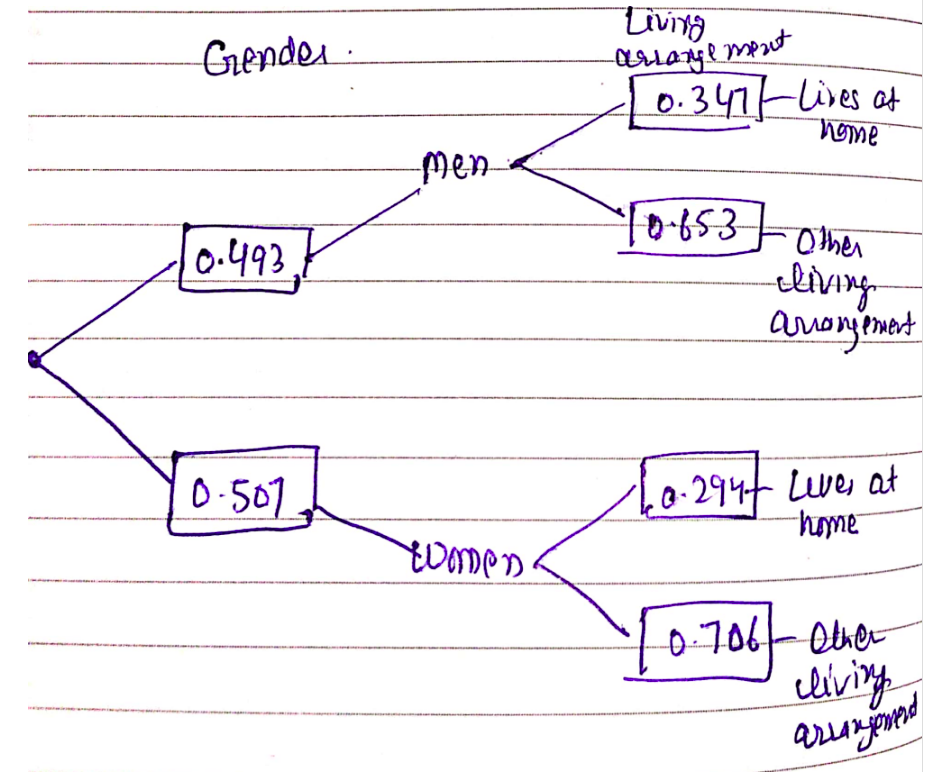 Gender.
Living
arrangement
0.347
Lives at
home
Men
0.653
Other
living
arrangement
0.493
0.507
Women
0.294
Lives at
home
0.706
Other
living
arrangement